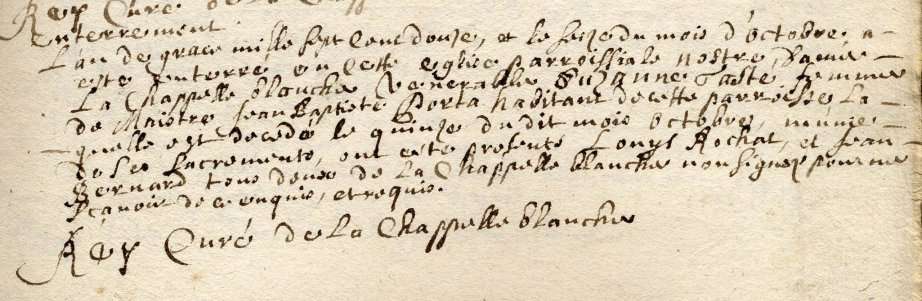 Rey Curé de la Chapp
Enterrement
L'an de grace mille sept cent douze, et le seize du mois d'octobre a
esté enterré en cette eglise parroissiale nostre Dame
La Chappelle blanche venerable Suzanne Gaste femme
de Maistre Jean Baptiste Porta habitant de cette parroisse La
quelle est decedé le quinze du dit mois octobre, munie
de ses sacrements, ont esté presents Louys Rochat, et Jean
Bernard tous deux de La Chappelle blanche non signez pour ne
sçavoir de ce enquis, et requis.
Rey Curé de La Chappelle blanche